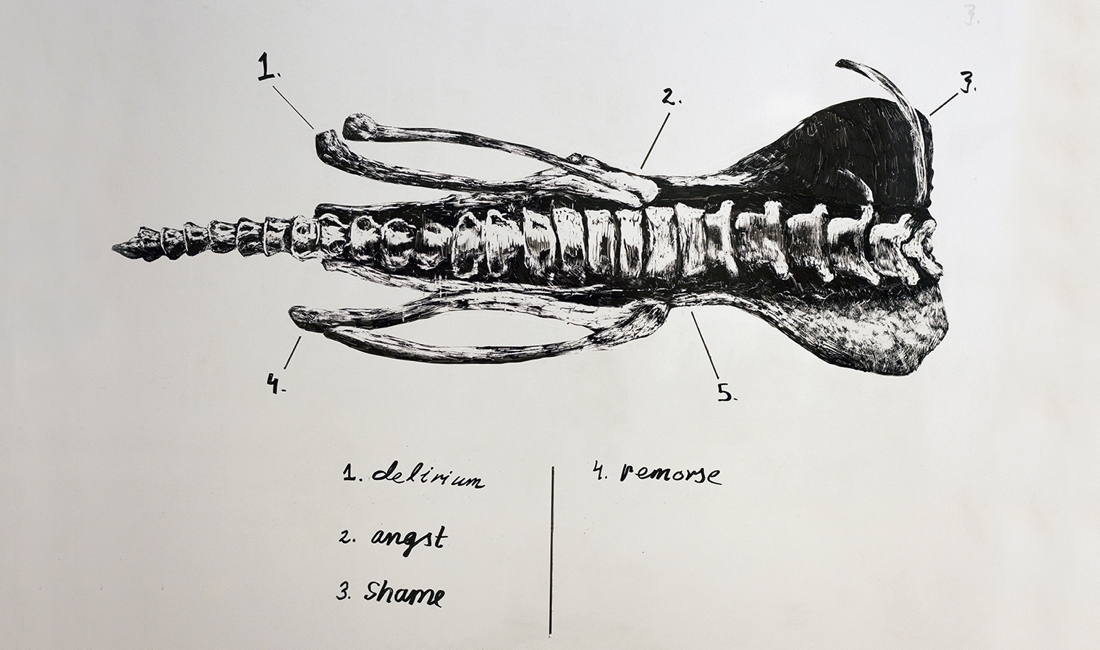 3.
1.
2.
3.
4.
5.
1. delirium
2. angst
3. Shame
4. remorse